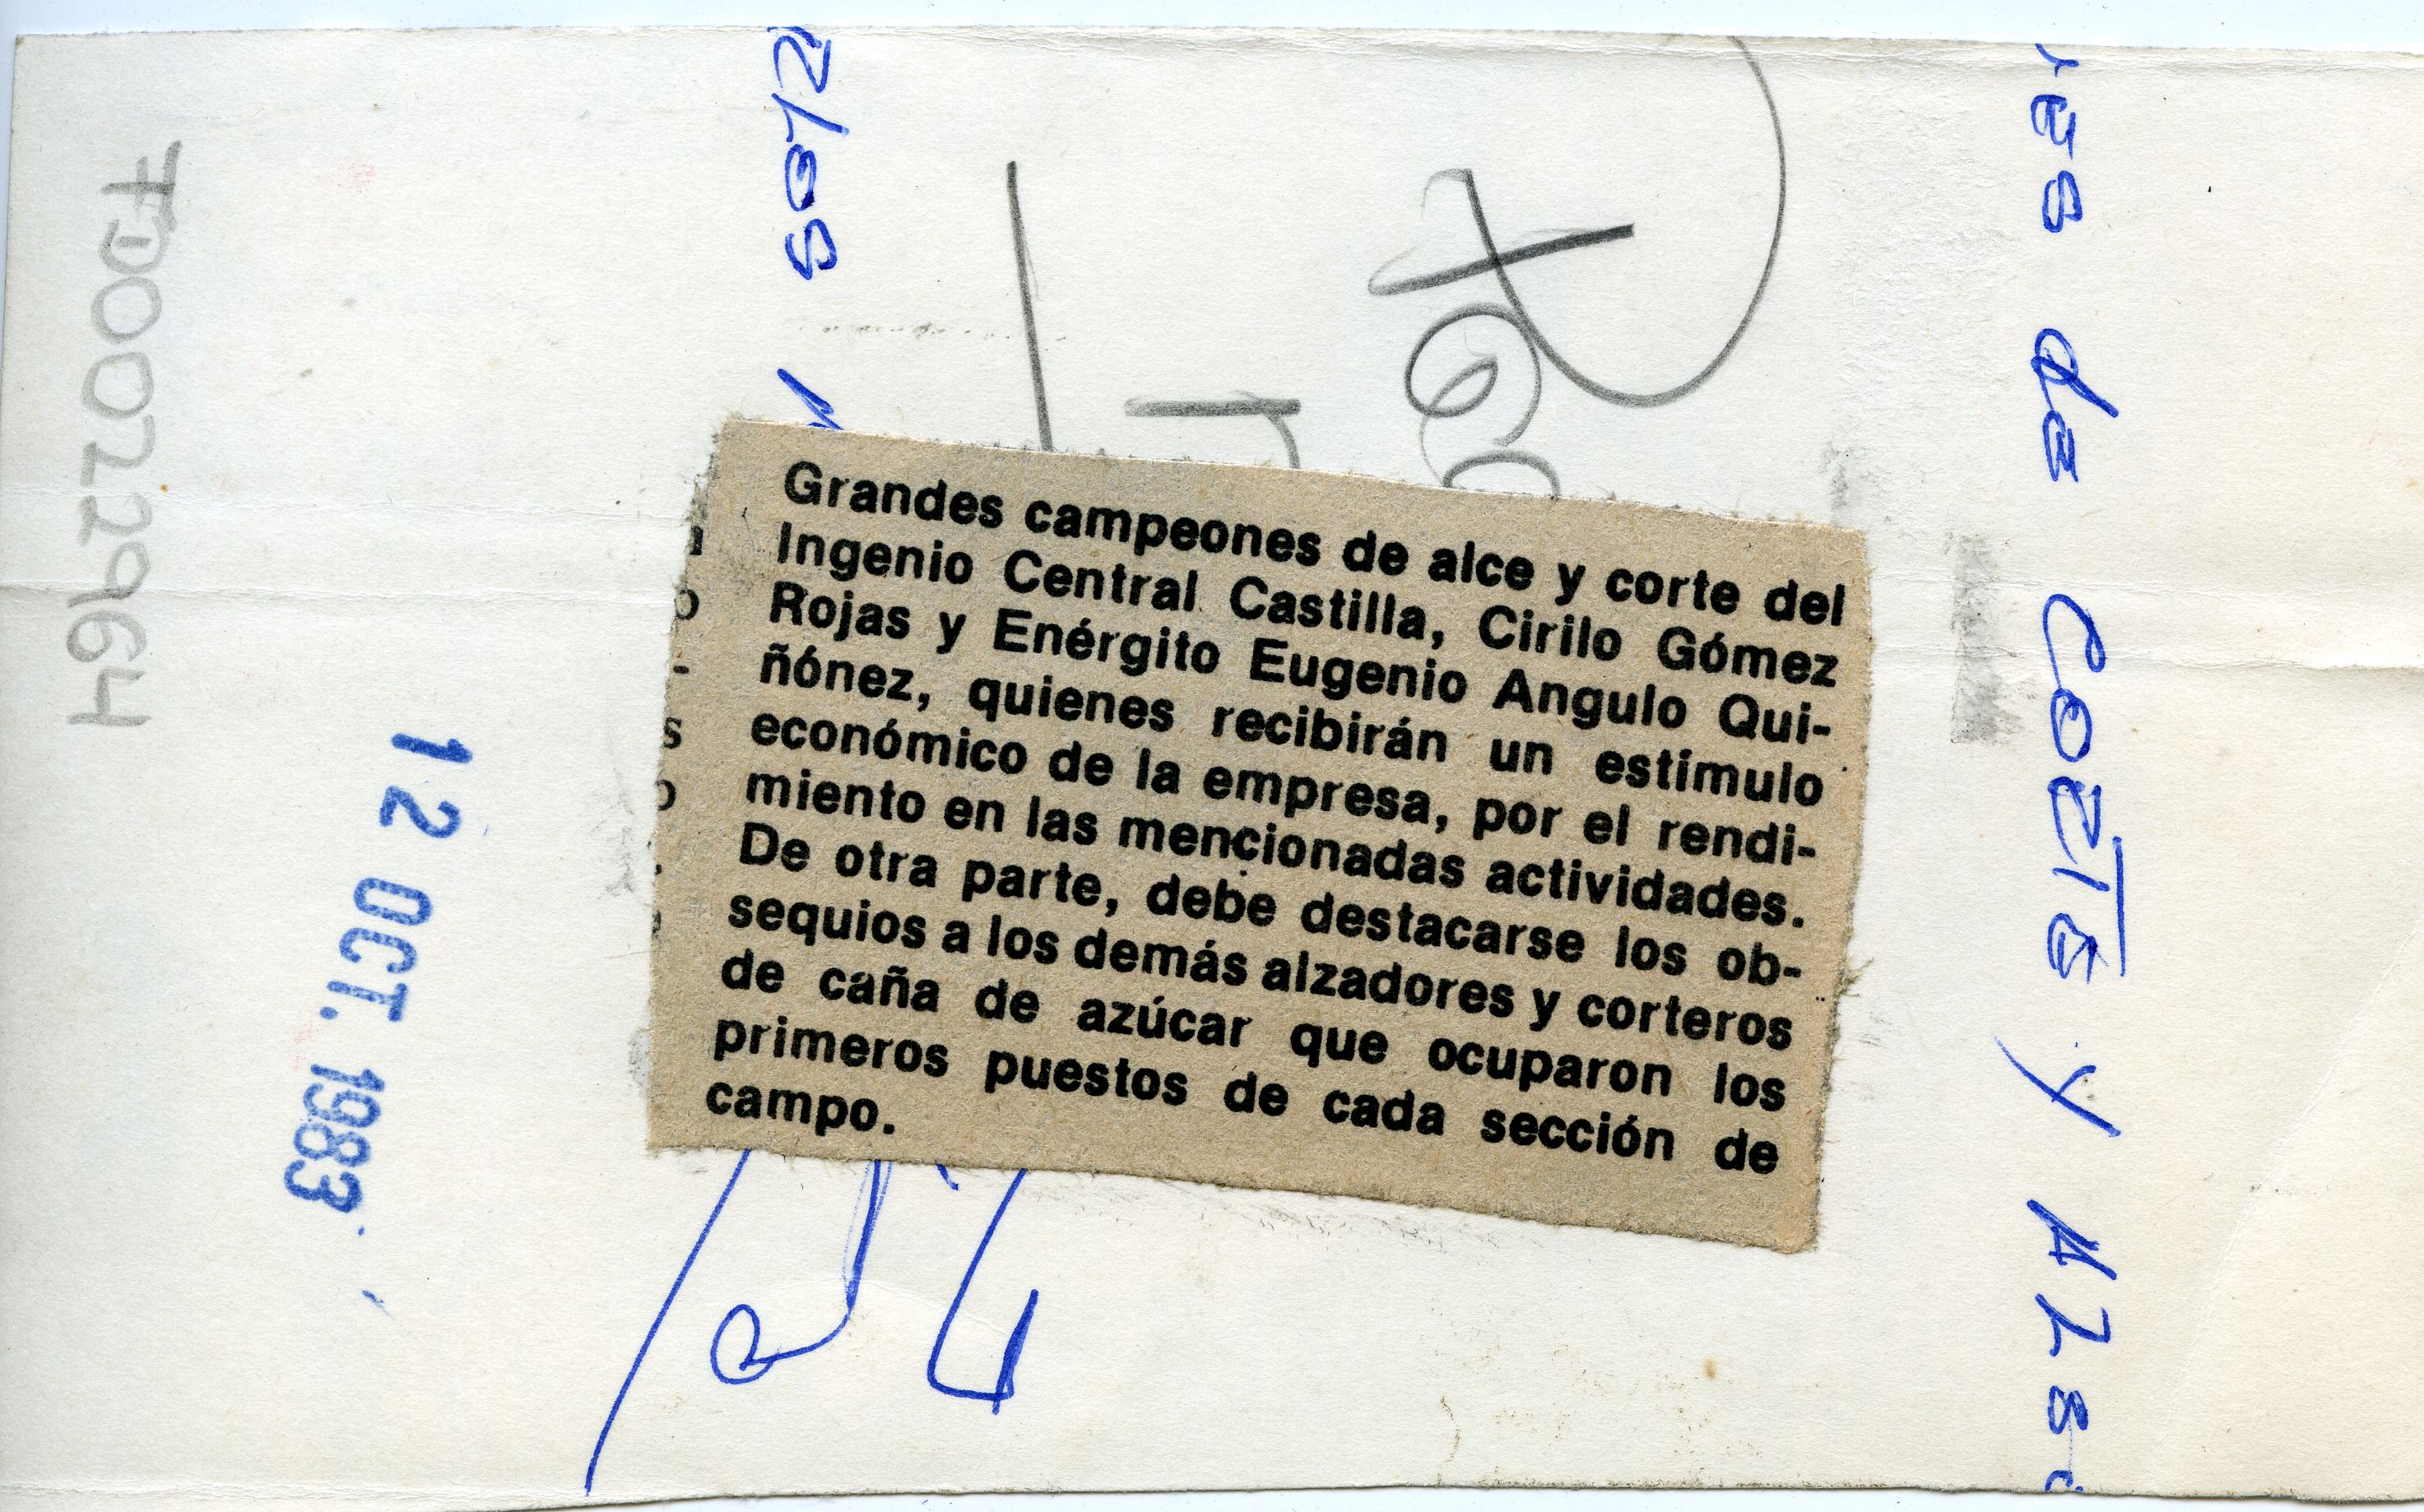 Grandes campeones de alce y corte del
Ingenio Central Castilla, Cirilo Gómez
Rojas y Enérgito Eugenio Angulo Qui-
ñónez, quienes recibirán un estímulo
económico de la empresa, por el rendi-
miento en las mencionadas actividades.
De otra parte, debe destacarse los ob-
sequios a los demás alzadores y corteros
de caña de azúcar que ocuparon los
primeros puestos de cada sección de
campo.
12 OCT. 1983
FD0022964
res de corte y Alsa